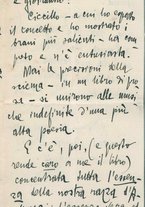 Cicillo - a cui ho esposto
il concetto e ho mostrato i
brani più salienti - ha cap
pito e n'è entusiasta.
Mai la precisione della
prima - in un libro di pro
sa - si unirono alle musi
che indefinite d'una più
alta poesia.
E c'è, poi, (e questo
rende caro a me il libro)
concentrata tutta l'essen
za della nostra razza d'A